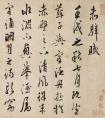 赤壁賦
壬戌之秋七月既望
蘇子與客泛舟遊於
赤壁之下清風徐來
水波不興舉酒屬
客誦明月之詩歌窈